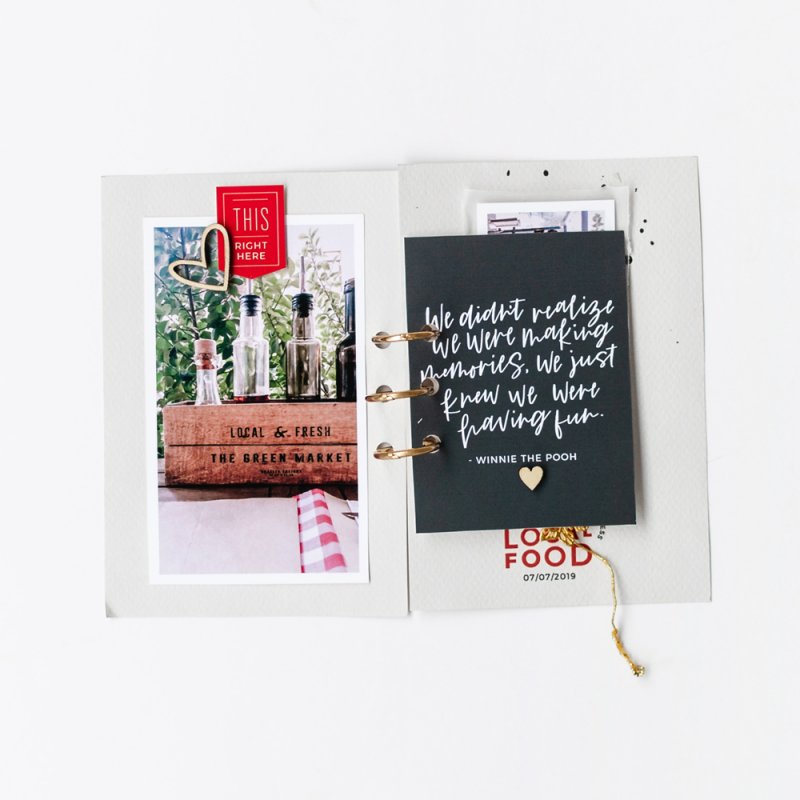 THIS
RIGHT
HERE
LOCAL & FRESH
THE GREEN MARKET
We didnt realize
we were making
memories, we just
knew we were
having fun.
- WINNIE THE POOH
LOCAL
FOOD
07/07/2019